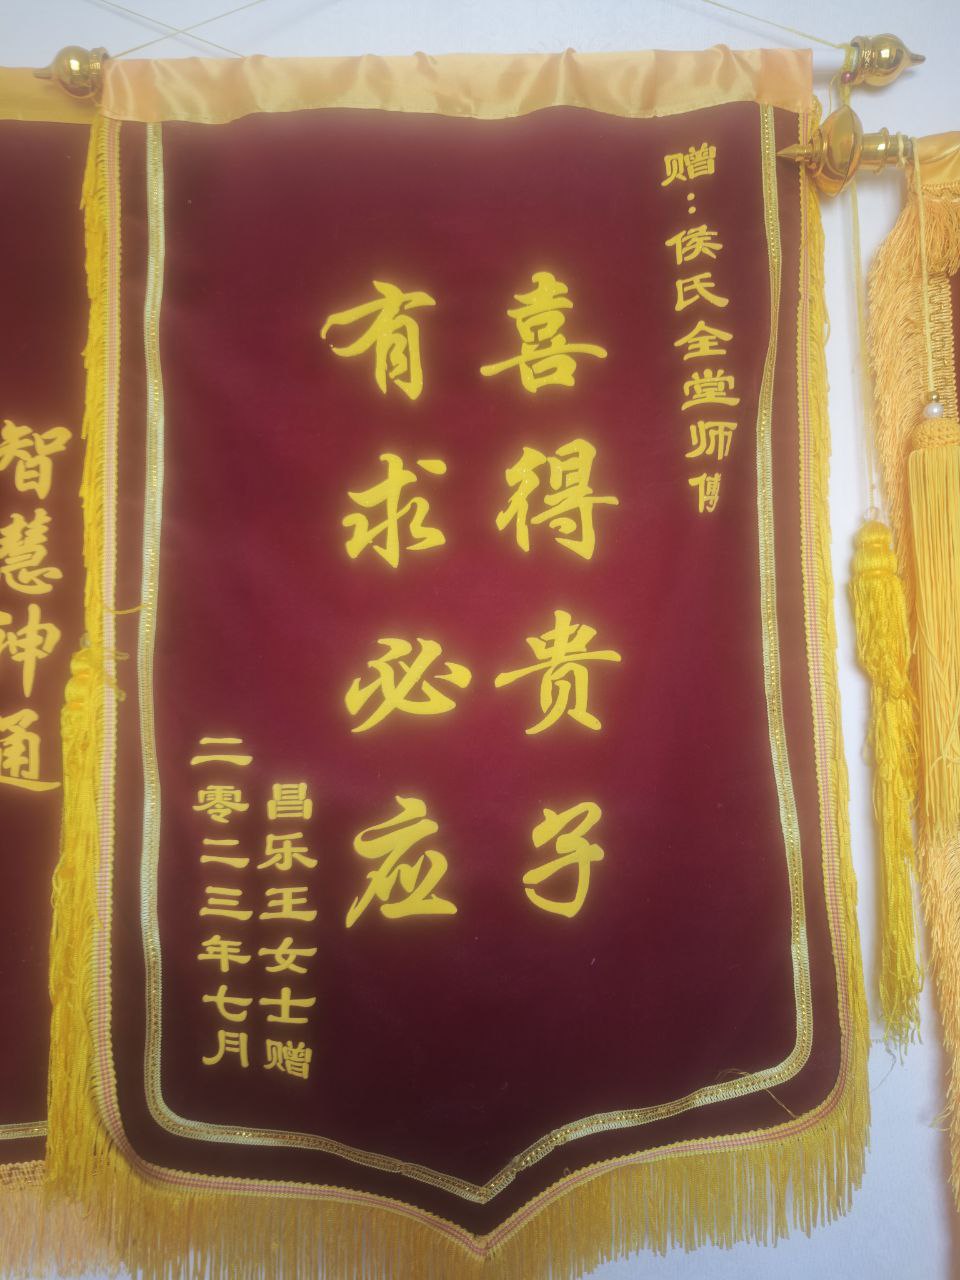 赠：侯氏全堂师傅
喜得贵子
有求必应
昌乐王女士赠
二零二三年七月
智慧神通